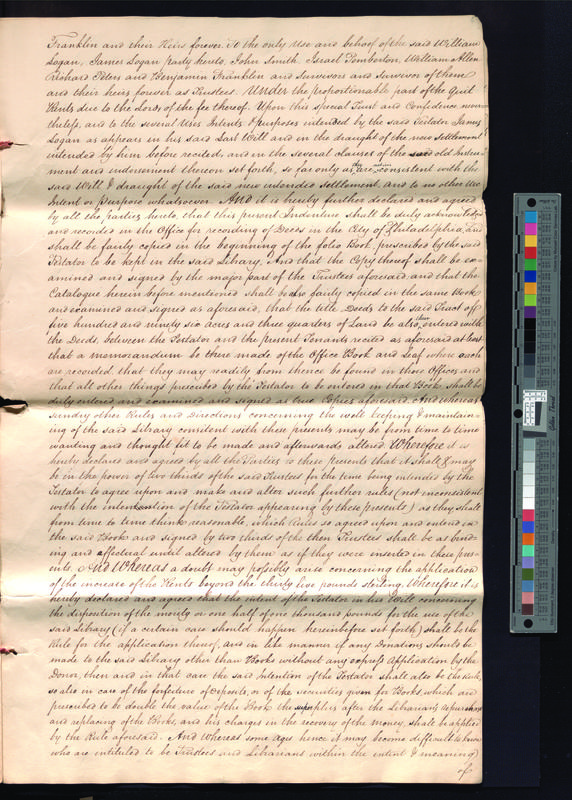 Franklin and their Heirs forever. To the only Use and behoof of the said William
Logan, James Logan party hereto, John Smith. Israel Pemberton, William Allen
Richard Peters and Benjamin Franklin and Survivors and Survivor of them
and their heirs forever as Trustees. Under the proportionable part of the Quit
Rents due to the Lords of the fee thereof. Upon this special Trust and Confidence never
theless, and to the several Uses Intents & purposes intended by the said Testator James
Logan as appears in his said Last Will and in the draught of the new Settlement
intended by him before recited, and in the several clauses of the said old Instru
ment and indorsement thereon set forth, so far only as they are consistent with the
said Will & draught of the said new intended settlement, and to no other Use
Intent or purpose whatsoever. And it is hereby further declared and agreed
by all the parties hereto, that this present Indenture shall be duly acknowledged
and recorded in the Office for recording of Deeds in the City of Philadelphia, and
shall be fairly copied in the beginning of the folio Book, prescribed by the said
Testator to be kept in the said Library, And that the Copy thereof shall be ex-
amined and signed by the major part of the Trustees aforesaid and that the
Catalogue herein before mentioned shall be also fairly copied in the same Book
and examined and signed as aforesaid, that the title Deeds to the said Tract of
five hundred and ninety six acres and three quarters of Land be also entered with
the Deeds, between the Testator and the present Tenants recited as aforesaid at least
that a memorandum be there made of the Office Book and Leaf where such
are recorded that they may readily from thence be found in those Offices and
that all other things prescribed by the Testator to be entered in that Book shall be
duly entered and examined and signed as true Copies aforesaid. And whereas
sundry other Rules and Directions concerning the well keeping & maintain-
ing of the said Library consistent with these presents may be from time to time
wanting and thought fit to be made and afterwards altered Wherefore it is
hereby declared and agreed by all the Parties to these presents that it shall & may
be in the power of two thirds of the said Trustees for the time being intended by the
Testator to agree upon and make and alter such further rules (not inconsistent
with the intention of the Testator appearing by these presents) as they shall
from time to time think reasonable, which Rules so agreed upon and entered in
the said Book and signed by two thirds of the then Trustees shall be as bind-
ing and effectual until altered by them as if they were inserted in these pres-
ents. And Whereas a doubt may possibly arise concerning the application
of the increase of the Rents beyond the thirty five pounds sterling. Wherefore it is
hereby declared and agreed that the intent of the Testator in his Will concerning
the disposition of the moiety or one half of one thousand pounds for the use of the
said Library (if a certain case should happen hereinbefore set forth) shall be the
Rule for the application thereof, and in like manner if any Donations should be
made to the said Library other than Books without any express Application by the
Donor, then and in that case the said Intention of the Testator shall also be the Rule,
so also in case of the forfeiture of deposits, or of the securities given for Books which are
prescribed to be double the value of the Book the surplus after the Librarians repurchasing
and replacing of the Books, and his charges in the recovery of the money, shall be applied
by the Rule aforesaid. And Whereas some ages hence it may become difficult to know
who are intituled to be Trustees and Librarians within the intent & meaning
of